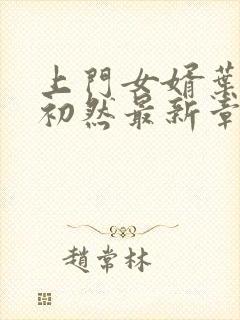 上門女婿葉
初然最新章
趙常林